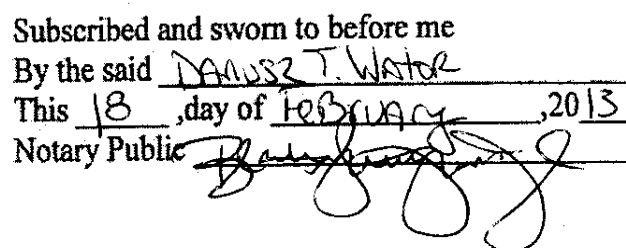 Subscribed and sworn to before me
By the said DARIUSZ T. WATOR
This 18 ,day of FEBRUARY ,2013
Notary Public